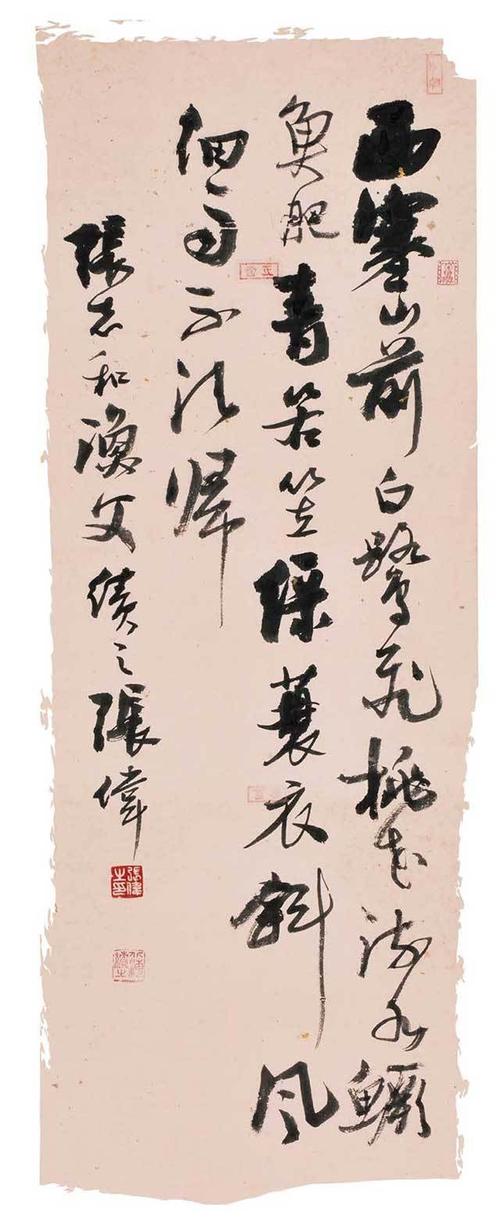 西塞山前白鷺飛桃花流水鱖
魚肥青箬笠綠蓑衣斜風
細雨不須歸
張志和漁父績之張偉
張偉之印